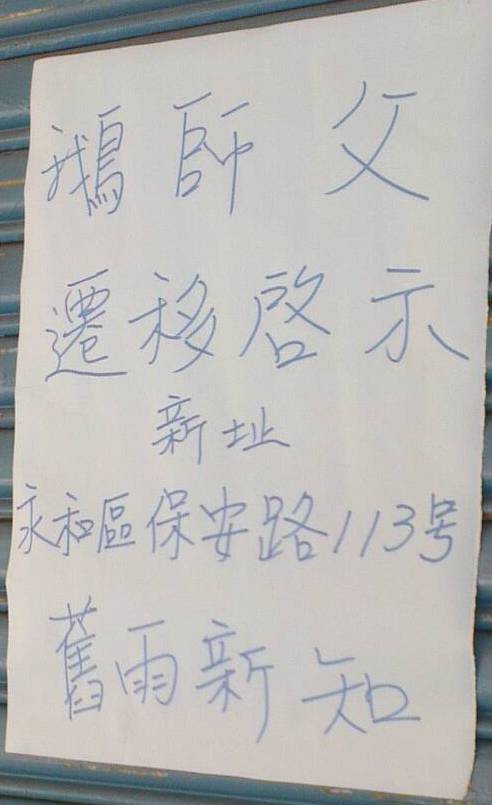 鵝師父
遷移啓示
新址
永和區保安路113号
舊雨新知